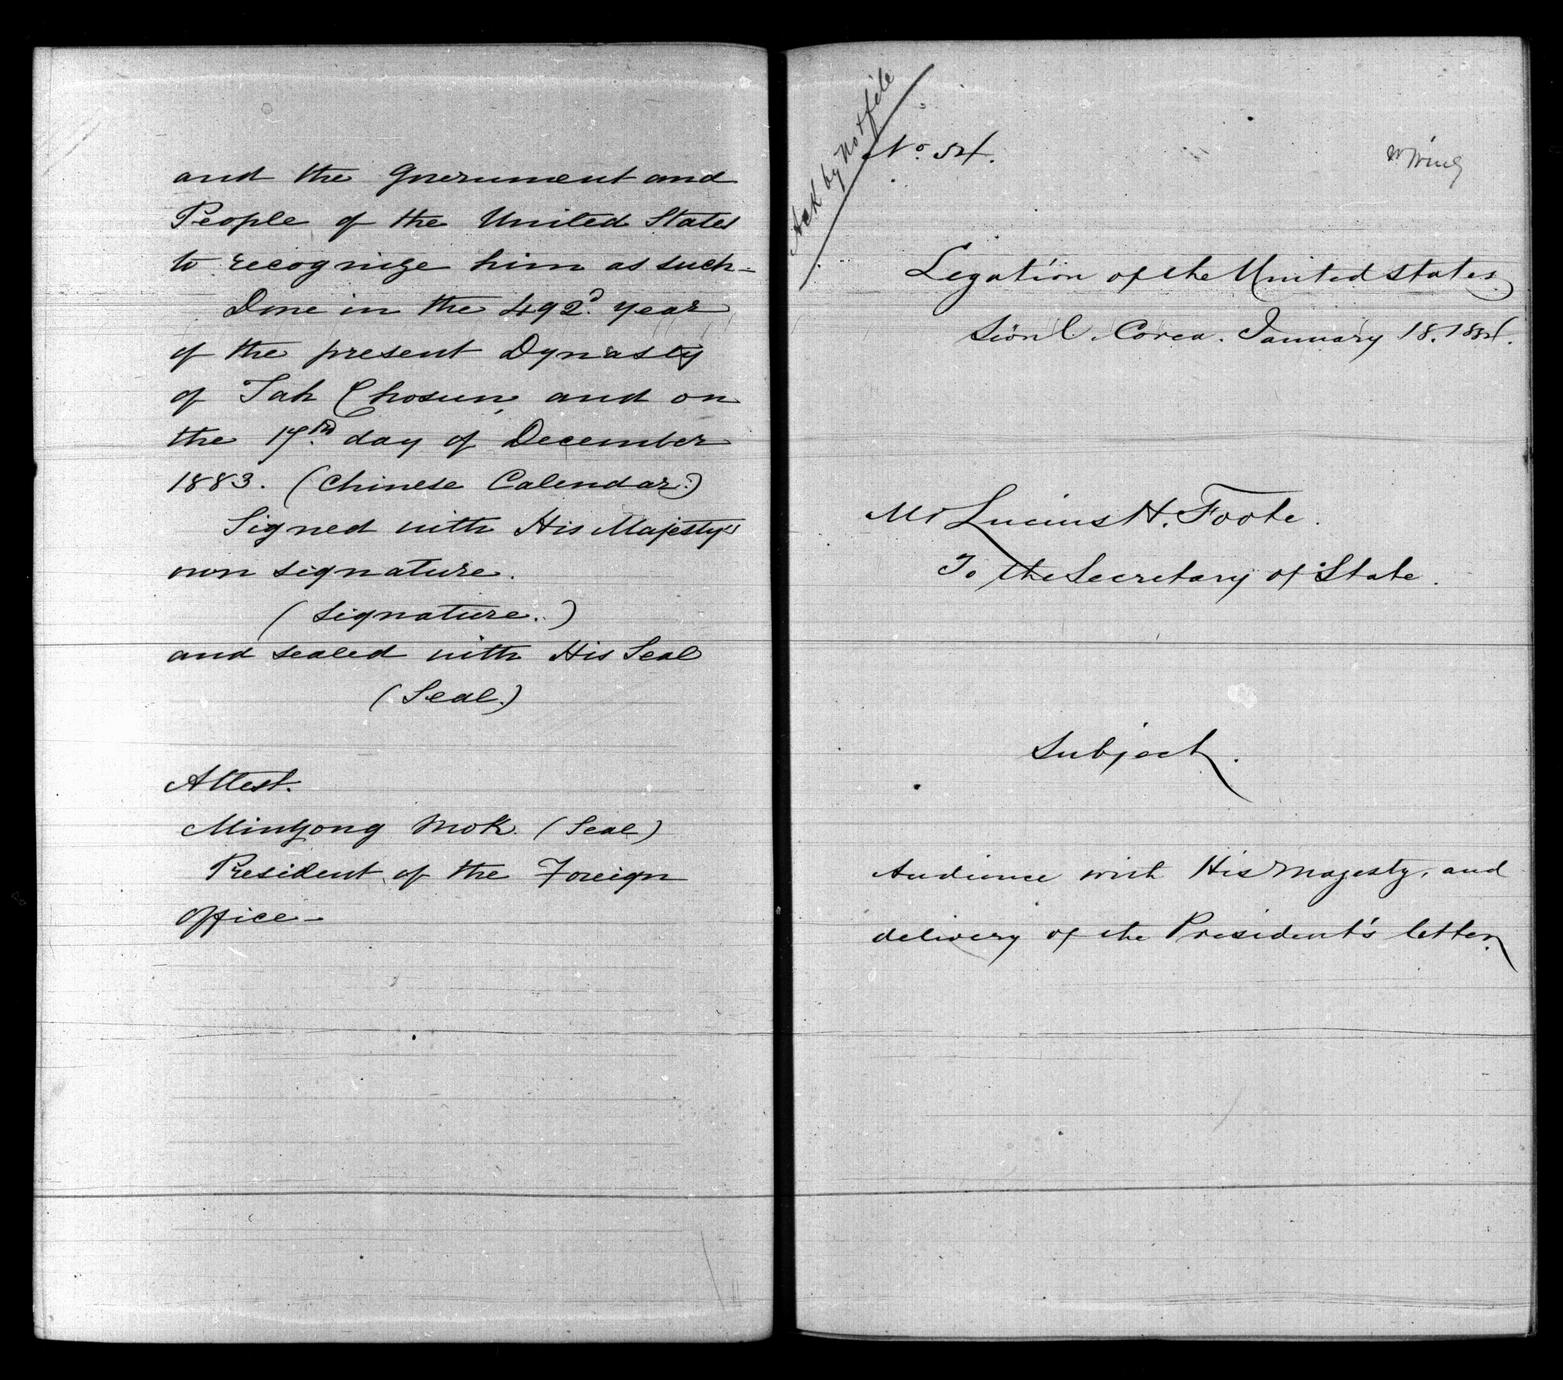 and the Government and
People of the United States
to recognize him as such—
Done in the 492d. year
of the present Dynasty
of Tah Chosun, and on
the 17th. day of December
1883. (Chinese Calendar.)
Signed with His Majesty's
own signature.
(Signature.)
and sealed with His Seal
(Seal.)
Attest.
Minyong Mok. (Seal)
President of the Foreign
Office—
Ack by Not file
No. 54.
Legation of the United States.
Sioul. Corea. January 18. 1884.
Mr Lucius H. Foote.
To the Secretary of State.
Subject.
Audience with His Majesty, and
delivery of the President's letter.